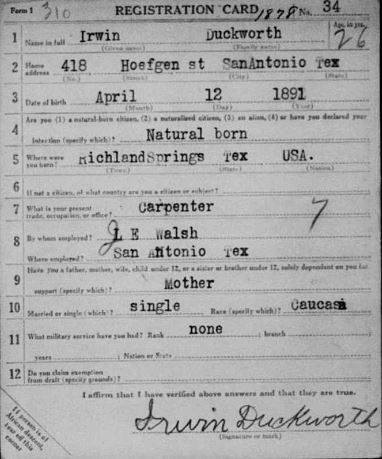 Form 1 310 REGISTRATION CARD 1878 No. 34
Age, in yrs. 26
1 Name in full Irwin Duckworth
(Given name) (Family name)
2 Home address 418 Hoefgen st SanAntonio Tex
(No.) (Street) (City) (State)
3 Date of birth April 12 1891
(Month) (Day) (Year)
4 Are you (1) a natural-born citizen, (2) a naturalized citizen, (3) an alien, (4) or have you declared your
intention (specify which)? Natural born
5 Where were you born? RichlandSprings Tex USA.
(Town) (State) (Nation)
6 If not a citizen, of what country are you a citizen or subject?
7 What is your present trade, occupation, or office? Carpenter 7
8 By whom employed? J E Walsh
Where employed? San Antonio Tex
9 Have you a father, mother, wife, child under 12, or a sister or brother under 12, solely dependent on you for
support (specify which)? Mother
10 Married or single (which)? single Race (specify which)? Caucasi
11 What military service have you had? Rank none ; branch
years ; Nation or State
12 Do you claim exemption from draft (specify grounds)?
I affirm that I have verified above answers and that they are true.
Irwin Duckworth
(Signature or mark)
If person is of African descent, tear off this corner